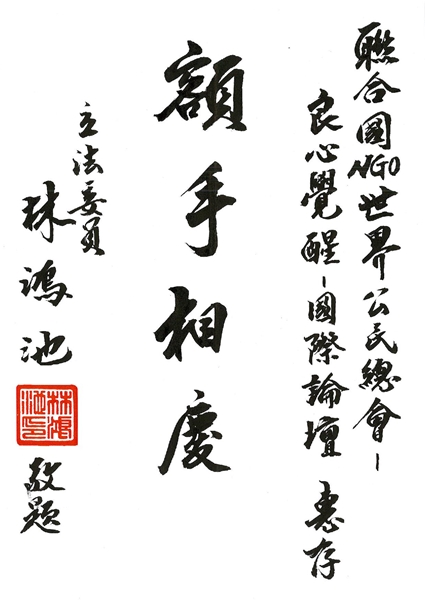 聯合國NGO世界公民總會－
良心覺醒－國際論壇 惠存
額手相慶
立法委員
林鴻池
林鴻
池印
敬題